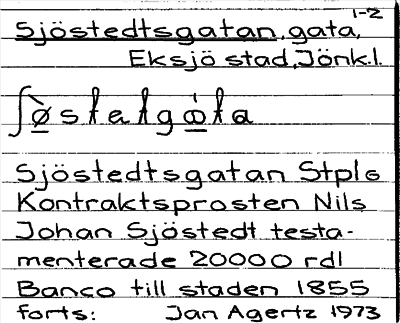 1-2
Sjöstedtsgatan, gata,
Eksjö stad, Jönk.l.
Sjöstedtsgatan Stpl6
Kontraktsprosten Nils
Johan Sjöstedt testa-
menterade 20000 rdl
Banco till staden 1855
forts: Jan Agertz 1973